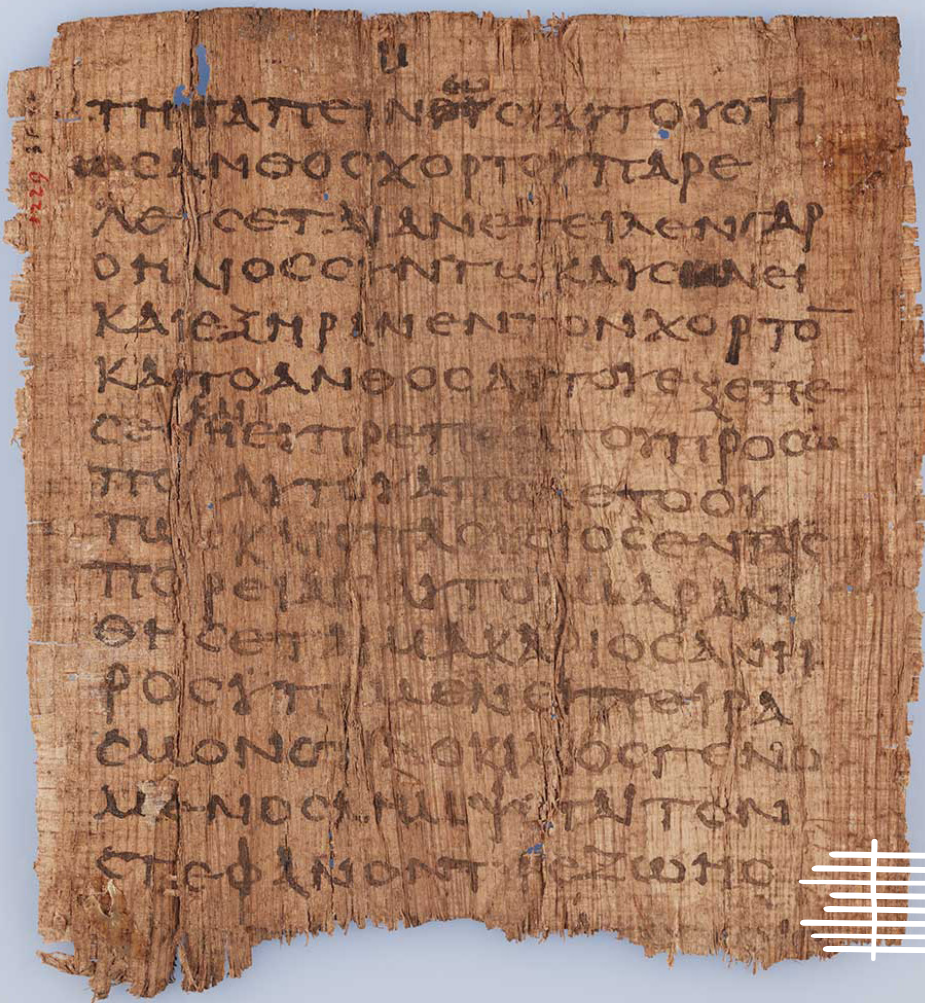 ΤΗΤΑΠΕΙΝΩϹΙΑΥΤΟΥΟΤΙ
ΩϹΑΝΘΟϹΧΟΡΤΟΥΠΑΡΕ
ΛΕΥϹΕΤΑΙΑΝΕΤΕΙΛΕΝΓΑΡ
ΟΗΛΙΟϹϹΥΝΤΩΚΑΥϹΩΝΕΙ
ΚΑΙΕΞΗΡΑΝΕΝΤΟΝΧΟΡΤΟ̅
ΚΑΙΤΟΑΝΘΟϹΑΥΤΟΥΕΞΕΠΕ
ϹΕΚΑΙΗΕΥΠΡΕΠΕΙΑΤΟΥΠΡΟϹΩ
ΠΟΥΑΥΤΟΥΑΠΩΛΕΤΟΟΥ
ΤΩϹΚΑΙΟΠΛΟΥϹΙΟϹΕΝΤΑΙϹ
ΠΟΡΕΙΑΙϹΑΥΤΟΥΜΑΡΑΝ
ΘΗϹΕΤΑΙΜΑΚΑΡΙΟϹΑΝΗ
ΡΟϹΥΠΟΜΕΝΕΙΠΕΙΡΑ
ϹΜΟΝΟΤΙΔΟΚΙΜΟϹΓΕΝΟ
ΜΕΝΟϹΛΗΜΨΕΤΑΙΤΟΝ
ϹΤΕΦΑΝΟΝΤΗϹΖΩΗϹ
1229